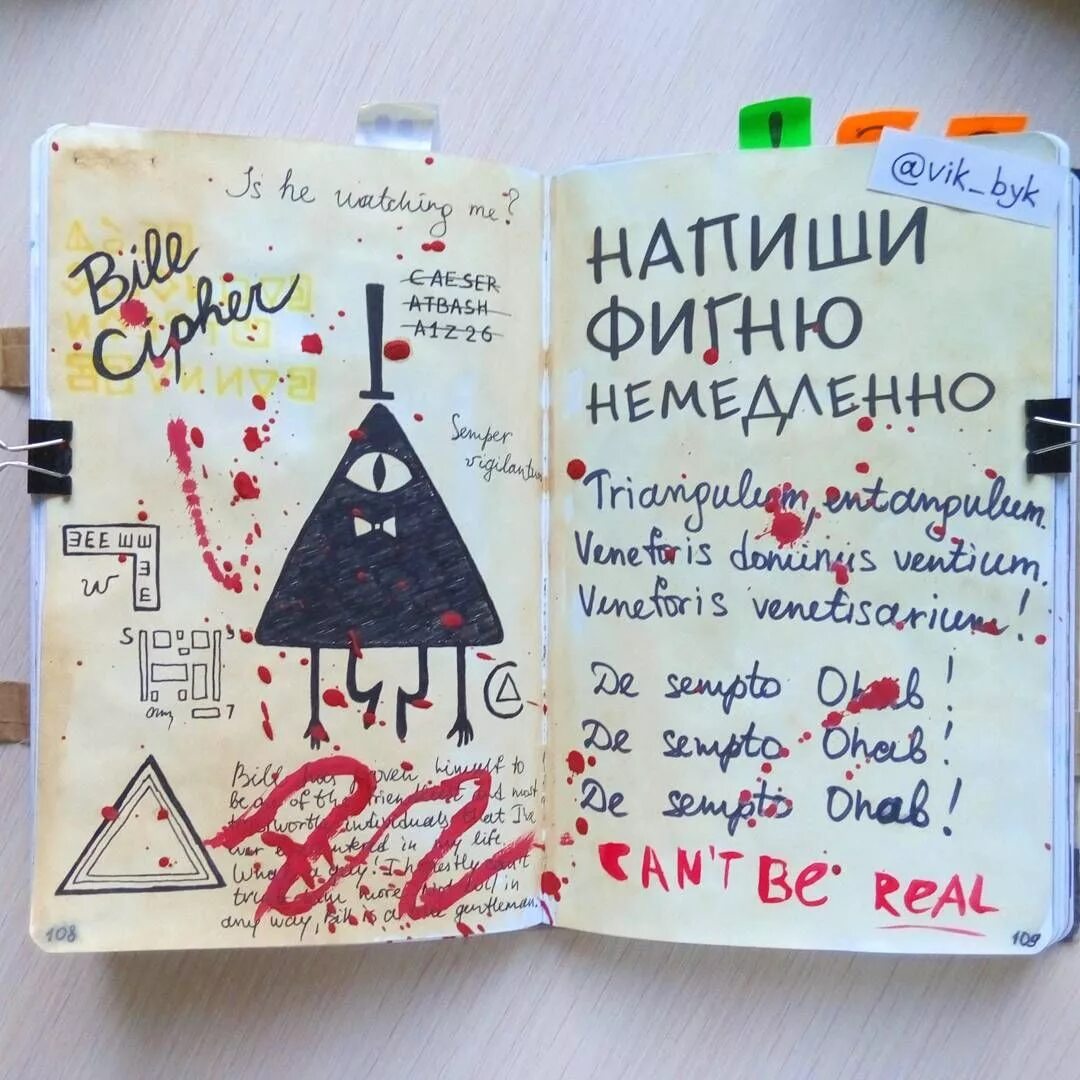 Is he watching me?
Bill
Cipher
CAESER
ATBASH
A1Z26
Semper
vigilantum
W
Bill has proven himself to
be one of the friendliest and most
trustworthy individuals that I've
ever encountered in my life.
What a guy! I honestly can't
trust him more. Not evil in
any way, Bill is a true gentleman.
108
@vik_byk
НАПИШИ
ФИГНЮ
НЕМЕДЛЕННО
Triangulum, entangulum.
Veneforis dominus ventium.
Veneforis venetisarium!
De sempto Ohab!
De sempto Ohab!
De sempto Ohab!
CAN'T BE REAL
109